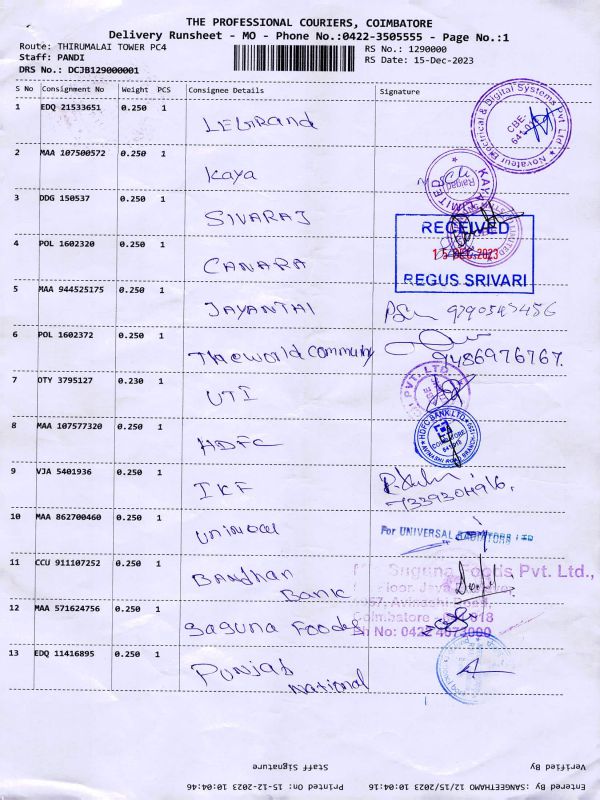 THE PROFESSIONAL COURIERS, COIMBATORE
Delivery Runsheet - MO - Phone No.:0422-3505555 - Page No.:1
Route: THIRUMALAI TOWER PC4 RS No.: 1290000
Staff: PANDI RS Date: 15-Dec-2023
DRS No.: DCJB129000001
S No Consignment No Weight PCS Consignee Details Signature
1 EDQ 21533651 0.250 1 LEGRAND
Novateur Electrical & Digital Systems Pvt. Ltd.
CBE-
2 MAA 107500572 0.250 1 Kaya
KAYA LIMITED
3 DDG 150537 0.250 1 SIVARAJ
RECEIVED
15 DEC 2023
REGUS SRIVARI
4 POL 1602320 0.250 1 CANARA
5 MAA 944525175 0.250 1 JAYANTHI
6 POL 1602372 0.250 1 Theworld community
9486976767.
7 OTY 3795127 0.230 1 UTI
PVT. LTD.
8 MAA 107577320 0.250 1 HDFC
HDFC BANK LTD
COIMBATORE
9 VJA 5401936 0.250 1 IKF
10 MAA 862700460 0.250 1
For UNIVERSAL RADIATORS LTD
11 CCU 911107252 0.250 1 Bandhan
Bank
Suguna Foods Pvt. Ltd.,
Floor, Jaya
Coimbatore
12 MAA 571624756 0.250 1 Saguna Foods
13 EDQ 11416895 0.250 1 Punjab
National
Entered By: SANGEETHAMO 12/15/2023 10:04:16 Printed On: 15-12-2023 10:04:46
Verified By Staff Signature